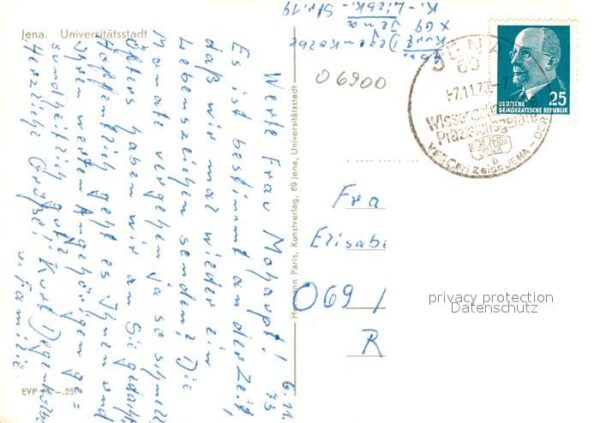 Jena. Universitätsstadt
6.11.73
Werte Frau Mohaupt!
Es ist bestimmt an der Zeit,
daß wir mal wieder ein
Lebenszeichen senden! Die
Monate vergehen ja so schnell
Öfters haben wir an Sie gedacht
Hoffentlich geht es Ihnen und
Ihren werten Angehörigen ge=
sundheitlich gut?
Herzliche Grüße! Kurt
u. Familie
EVP -.25
Hermann Paris, Kunstverlag, 69 Jena, Universitätsstadt
Kurt
X 69 Jena
K.-Liebk.-Str. 19
06900
JENA
69
-7.11.73
Präzisionsgeräte
VEB Carl Zeiss JENA - DDR
b
DEUTSCHE
DEMOKRATISCHE REPUBLIK
25
Fra
Elisab
069 /
R
privacy protection
Datenschutz